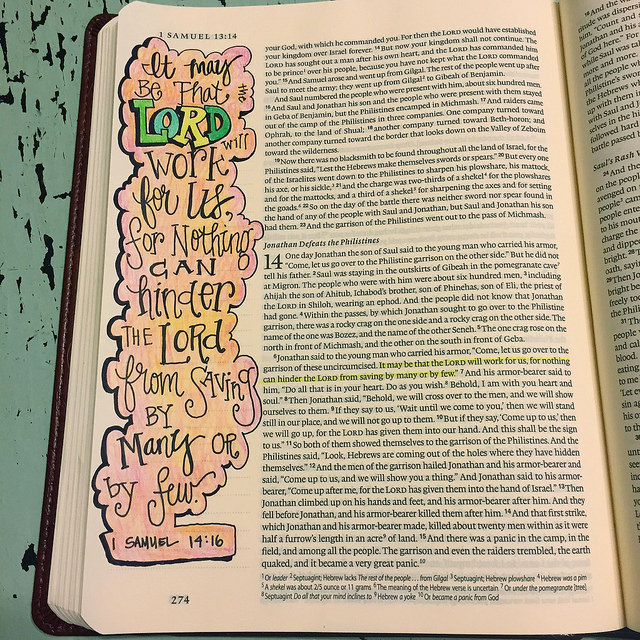 1 SAMUEL 13:14
It may
BE That
THE
LORD
will
work
for Us,
for Nothing
CAN
hinder
THE LORD
from Saving
BY
Many OR
by few.
1 SAMUEL 14:16
274
your God, with which he commanded you. For then the LORD would have established
your kingdom over Israel forever. 14 But now your kingdom shall not continue. The
LORD has sought out a man after his own heart, and the LORD has commanded him
to be prince¹ over his people, because you have not kept what the LORD commanded
you." 15 And Samuel arose and went up from Gilgal. The rest of the people went up after
Saul to meet the army; they went up from Gilgal² to Gibeah of Benjamin.
And Saul numbered the people who were present with him, about six hundred men.
16 And Saul and Jonathan his son and the people who were present with them stayed
in Geba of Benjamin, but the Philistines encamped in Michmash. 17 And raiders came
out of the camp of the Philistines in three companies. One company turned toward
Ophrah, to the land of Shual; 18 another company turned toward Beth-horon; and
another company turned toward the border that looks down on the Valley of Zeboim
toward the wilderness.
19 Now there was no blacksmith to be found throughout all the land of Israel, for the
Philistines said, "Lest the Hebrews make themselves swords or spears." 20 But every one
of the Israelites went down to the Philistines to sharpen his plowshare, his mattock,
his axe, or his sickle,³ 21 and the charge was two-thirds of a shekel⁴ for the plowshares
and for the mattocks, and a third of a shekel⁵ for sharpening the axes and for setting
the goads.⁶ 22 So on the day of the battle there was neither sword nor spear found in
the hand of any of the people with Saul and Jonathan, but Saul and Jonathan his son
had them. 23 And the garrison of the Philistines went out to the pass of Michmash.
Jonathan Defeats the Philistines
14 One day Jonathan the son of Saul said to the young man who carried his armor,
"Come, let us go over to the Philistine garrison on the other side." But he did not
tell his father. 2 Saul was staying in the outskirts of Gibeah in the pomegranate cave⁷
at Migron. The people who were with him were about six hundred men, 3 including
Ahijah the son of Ahitub, Ichabod's brother, son of Phinehas, son of Eli, the priest of
the LORD in Shiloh, wearing an ephod. And the people did not know that Jonathan
had gone. 4 Within the passes, by which Jonathan sought to go over to the Philistine
garrison, there was a rocky crag on the one side and a rocky crag on the other side. The
name of the one was Bozez, and the name of the other Seneh. 5 The one crag rose on the
north in front of Michmash, and the other on the south in front of Geba.
6 Jonathan said to the young man who carried his armor, "Come, let us go over to the
garrison of these uncircumcised. It may be that the LORD will work for us, for nothing
can hinder the LORD from saving by many or by few." 7 And his armor-bearer said to
him, "Do all that is in your heart. Do as you wish.⁸ Behold, I am with you heart and
soul." 8 Then Jonathan said, "Behold, we will cross over to the men, and we will show
ourselves to them. 9 If they say to us, 'Wait until we come to you,' then we will stand
still in our place, and we will not go up to them. 10 But if they say, 'Come up to us,' then
we will go up, for the LORD has given them into our hand. And this shall be the sign
to us." 11 So both of them showed themselves to the garrison of the Philistines. And the
Philistines said, "Look, Hebrews are coming out of the holes where they have hidden
themselves." 12 And the men of the garrison hailed Jonathan and his armor-bearer and
said, "Come up to us, and we will show you a thing." And Jonathan said to his armor-
bearer, "Come up after me, for the LORD has given them into the hand of Israel." 13 Then
Jonathan climbed up on his hands and feet, and his armor-bearer after him. And they
fell before Jonathan, and his armor-bearer killed them after him. 14 And that first strike,
which Jonathan and his armor-bearer made, killed about twenty men within as it were
half a furrow's length in an acre⁹ of land. 15 And there was a panic in the camp, in the
field, and among all the people. The garrison and even the raiders trembled, the earth
quaked, and it became a very great panic.¹⁰
1 Or leader 2 Septuagint; Hebrew lacks The rest of the people . . . from Gilgal 3 Septuagint; Hebrew plowshare 4 Hebrew was a pim
5 A shekel was about 2/5 ounce or 11 grams 6 The meaning of the Hebrew verse is uncertain 7 Or under the pomegranate [tree]
8 Septuagint Do all that your mind inclines to 9 Hebrew a yoke 10 Or became a panic from God